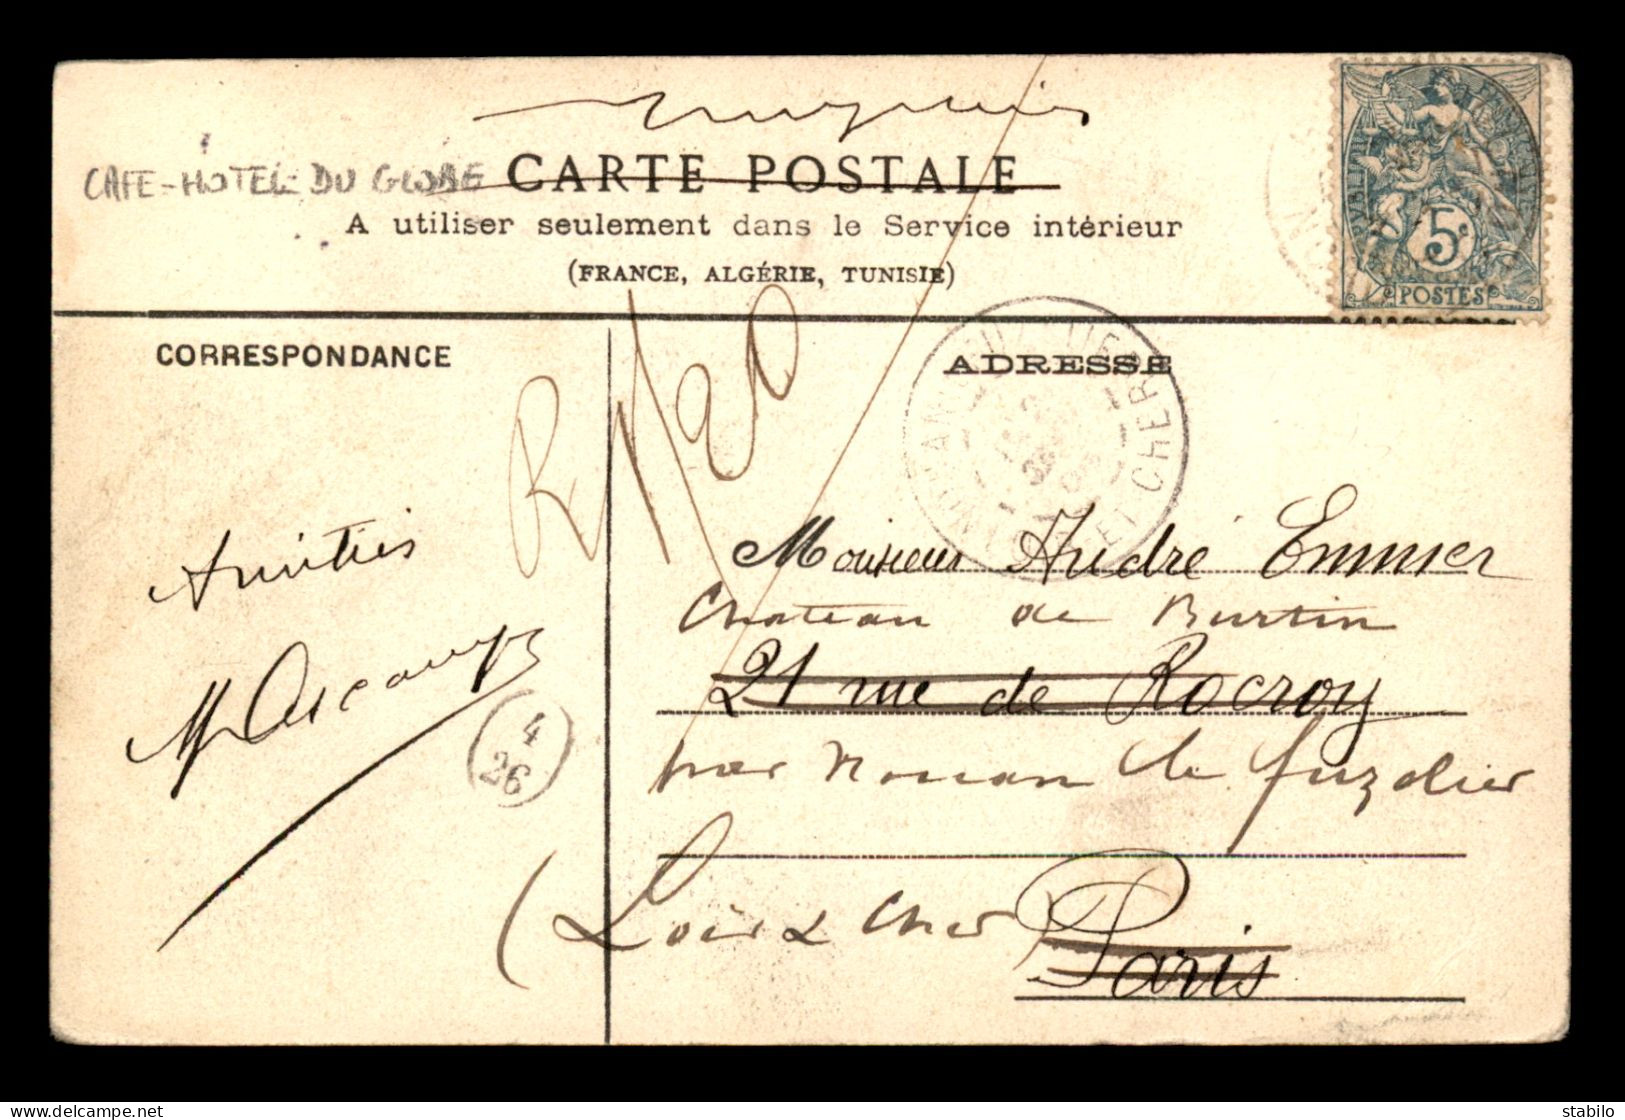 CAFE-HOTEL DU GLOBE
CARTE POSTALE
A utiliser seulement dans le Service intérieur
(FRANCE, ALGÉRIE, TUNISIE)
5c
POSTES
CORRESPONDANCE
ADRESSE
R 1/20
ET CHER
Amitiés
4
26
Monsieur André Emmer
Chateau de Burtin
21 rue de Rocroy
par Nouan le fuzelier
(Loir & Cher)
Paris
www.stabilo